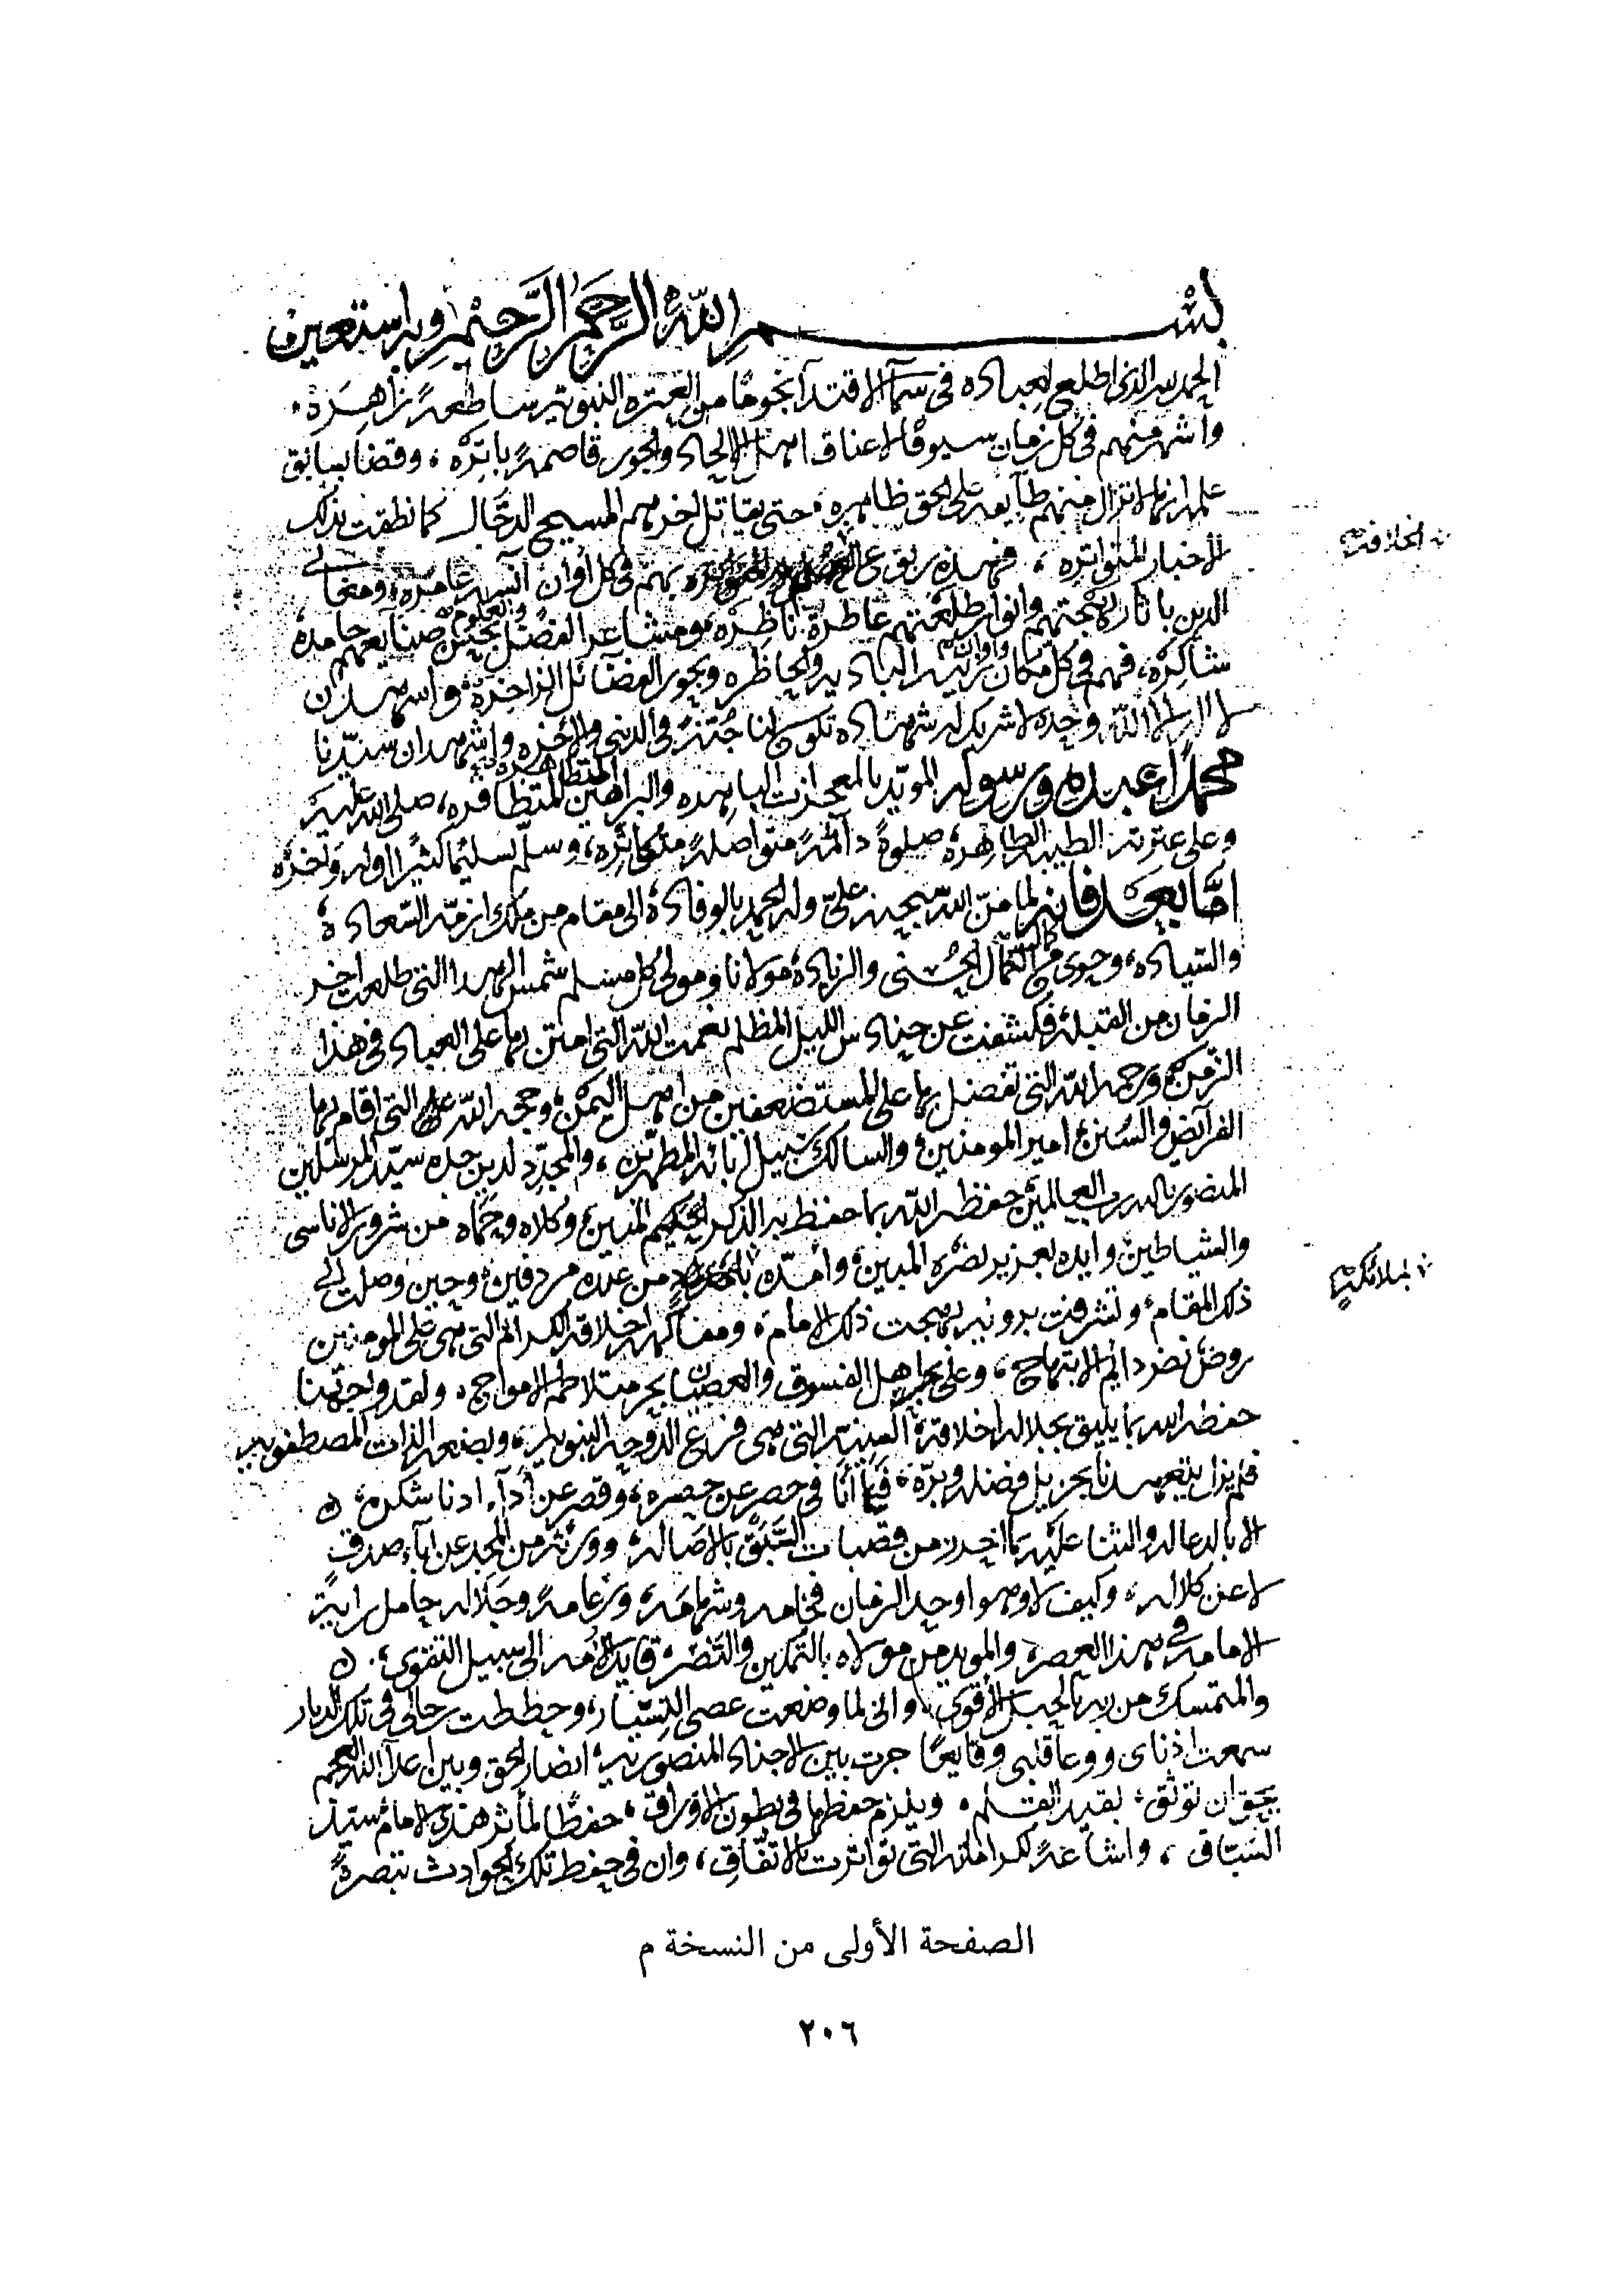 بسم الله الرحمن الرحيم وبه استعين
الحمد لله الذي اطلع لعباده في سمآ الاقتدآ نجومًا من العترة النبوية ساطعة زاهرة،
واشهر منهم في كل زمان سيوفًا لاعناق اهل الالحاد والجور قاصمة باترة، وقضا بسابق
علمه انها لا تزال منهم طآيفة على الحق ظاهرة، حتى يقاتل اخرهم المسيح الدجال كما نطقت بذلك
الاخبار المتواترة، بهم في كل اوان آنسة عامرة، ومعالي
الخلافة
الدين باثار وانوار طلعتهم عاطرة ناظرة، ومشاعر الفضل والعلوم صنايعهم حامدة
شاكرة، فهم في كل مكان واوان زينة البادية والحاظرة وبحور الفضائل الزاخرة، واشهد ان
لا اله الا الله وحده لا شريك له شهادة تكون لنا جُنة في الدنيا والاخرة واشهد ان سيدنا
محمدًا عبده ورسوله المويد بالمعجزات الباهرة والبراهين المتظافرة، صلى الله عليه
وعلى عترته الطيبة الطاهرة، صلوةً دآئمة متواصلة متكاثرة، وسلم تسليما كثيرًا اوله واخره
امّا بعد فانه لما منّ الله سبحنه عليّ وله الحمد بالوفادة الى مقام من ملك ازمّة السعادة
والسيادة، وحوى من الكمال الحسنى والزيادة، مولانا ومولى كل مسلم شمس الهدا التي طلعت اخر
الزمان من القبلة فكشفت عن حنادس الليل المظلم نعمت الله التي امتن بها على العباد في هذا
الزمن، ورحمة الله التي تفضل بها على المستضعفين من اهل اليمن، وحجة الله التي اقام بها
الفرآئض والسنن، امير المومنين، والسالك سبيل ابائه المطهرين، والمجدد لدين جده سيد المرسلين
المنصور بالله رب العالمين حفظه الله بما حفظ به الذكر الحكيم المبين، وكلاه وحماه من شرور الاناسي
والشياطين، وايده بعزيز نصره المبين، وامدّه من عنده مردفين، وحين وصلت الى
بالملائكة
ذلك المقام، وتشرفت برونية بهجت ذلك الامام، ومفاكهة اخلاقه الكرام التي هي على المومنين
روض نضر دائم الابتهاج، وعلى اهل الفسوق والعصيان بحر متلاطم الامواج، ولقد واجهنا
حفظه الله بما يليق بجلالة اخلاقه التي هي فرع الدوحة النبوية، وبضعة الذات المصطفوية
فلم يزل يتعهدنا بجزيل فضله وبرّه، فيا انا في حصر عن حصره، وقصر عن ادآء ادنا شكره،
الا بالدعا له والثنا عليه بما اخذه من قصبات السبق بالاصالة، وورثه من المجد عن ابآء صدقٍ
لا عن كلالة، وكيف لا وهو اوحد الزمان فخامة وشهامة، وزعامة وجلالة حامل راية
الامامة في هذا العصر، والمويد من مولاه بالتمكين والنصر، قايد الامة الى سبيل التقوى،
والمتمسك من ربه بالحبل الاقوى، واني لما وضعت عصى التسيار، وحططت رحالي في تلك الديار
سمعت اذناي ووعا قلبي وقايعًا جرت بين الاجناد المنصورية، انصار الحق وبين اعدآ الله العجم
يحق ان توثق، بقيد القلم، ويلزم حفظها في بطون الاوراق، حفظًا لمأثر هذا الامام
السبّاق، واشاعة لكراماته التي تواترت بالاتفاق، وان في حفظ تلك الحوادث تبصرةً
الصفحة الأولى من النسخة م
٢٠٦